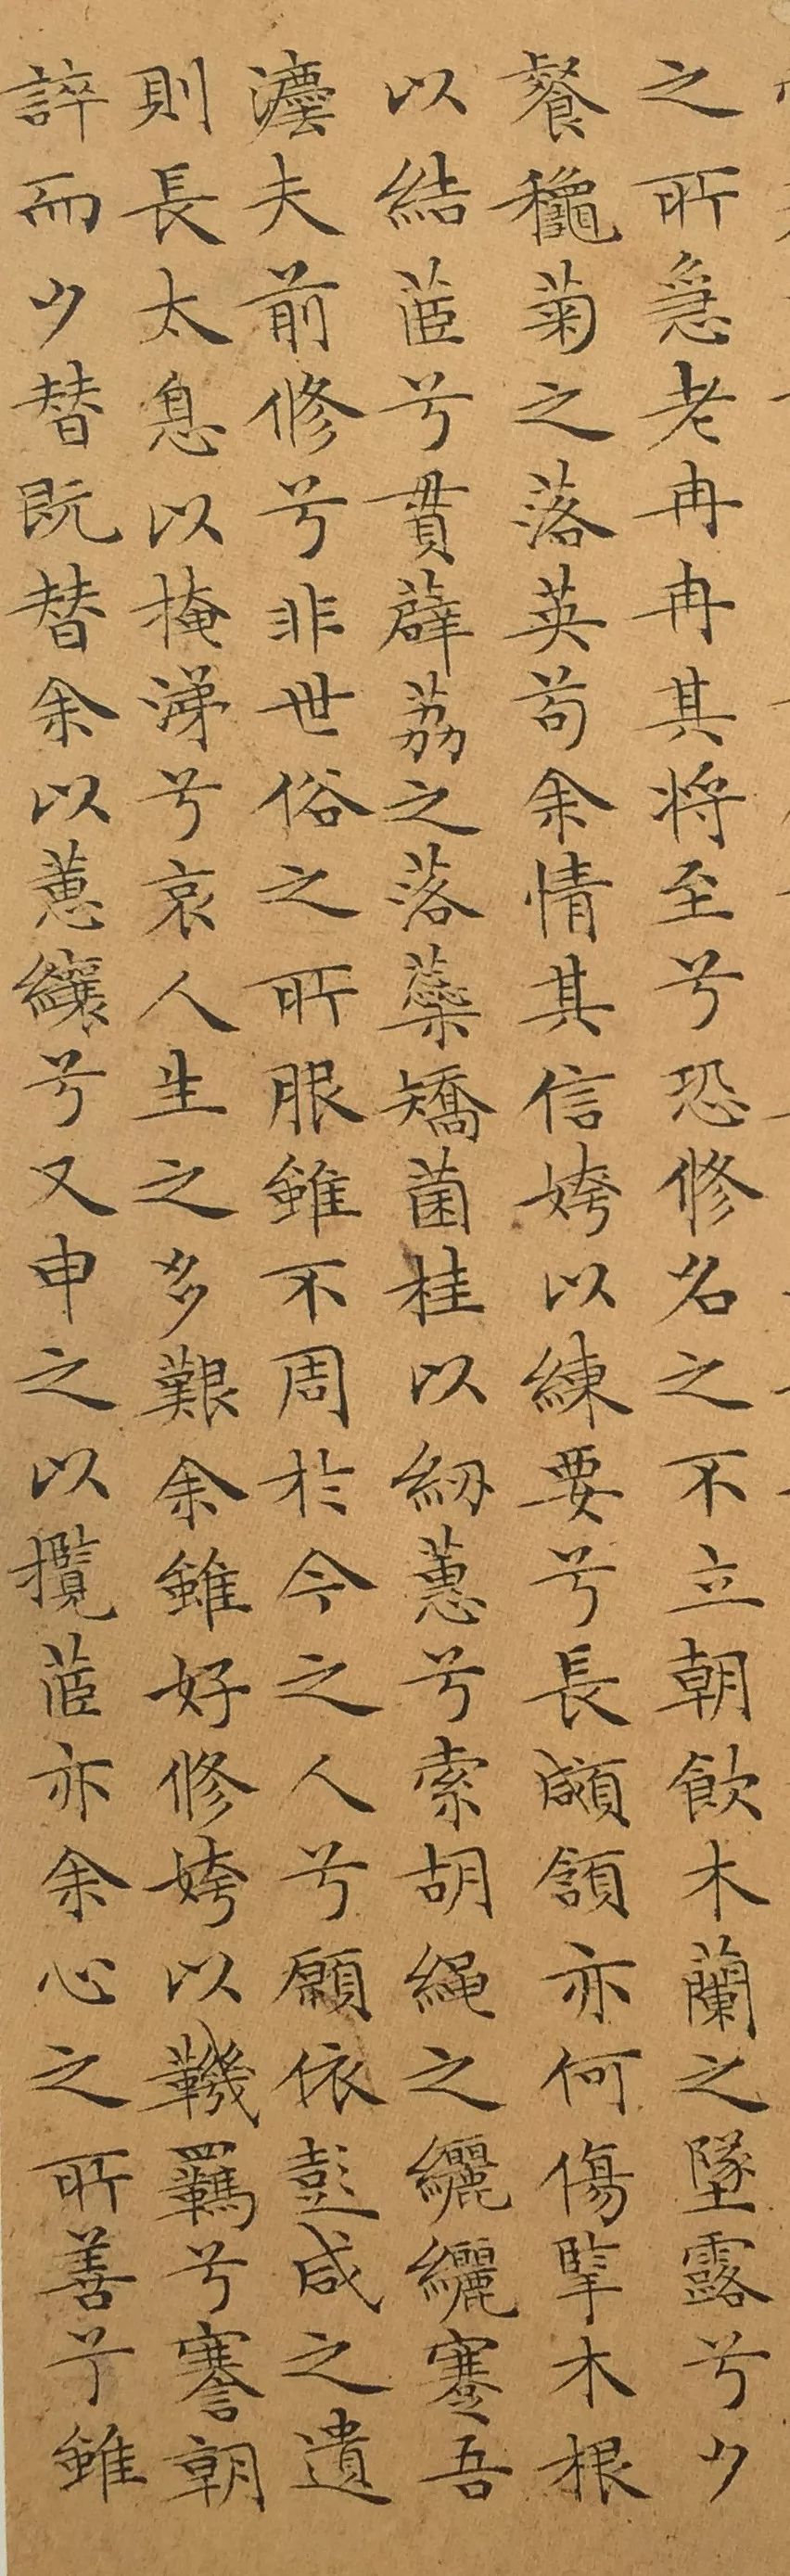 之所急老冉冉其将至兮恐修名之不立朝飲木蘭之墜露兮夕
餐穐菊之落英苟余情其信姱以練要兮長顑頷亦何傷掔木根
以結茝兮貫薜荔之落蘂矯菌桂以紉蕙兮索胡繩之纚纚謇吾
灋夫前修兮非世俗之所服雖不周於今之人兮願依彭咸之遺
則長太息以掩涕兮哀人生之多艱余雖好修姱以鞿羈兮謇朝
誶而夕替既替余以蕙纕兮又申之以攬茝亦余心之所善兮雖